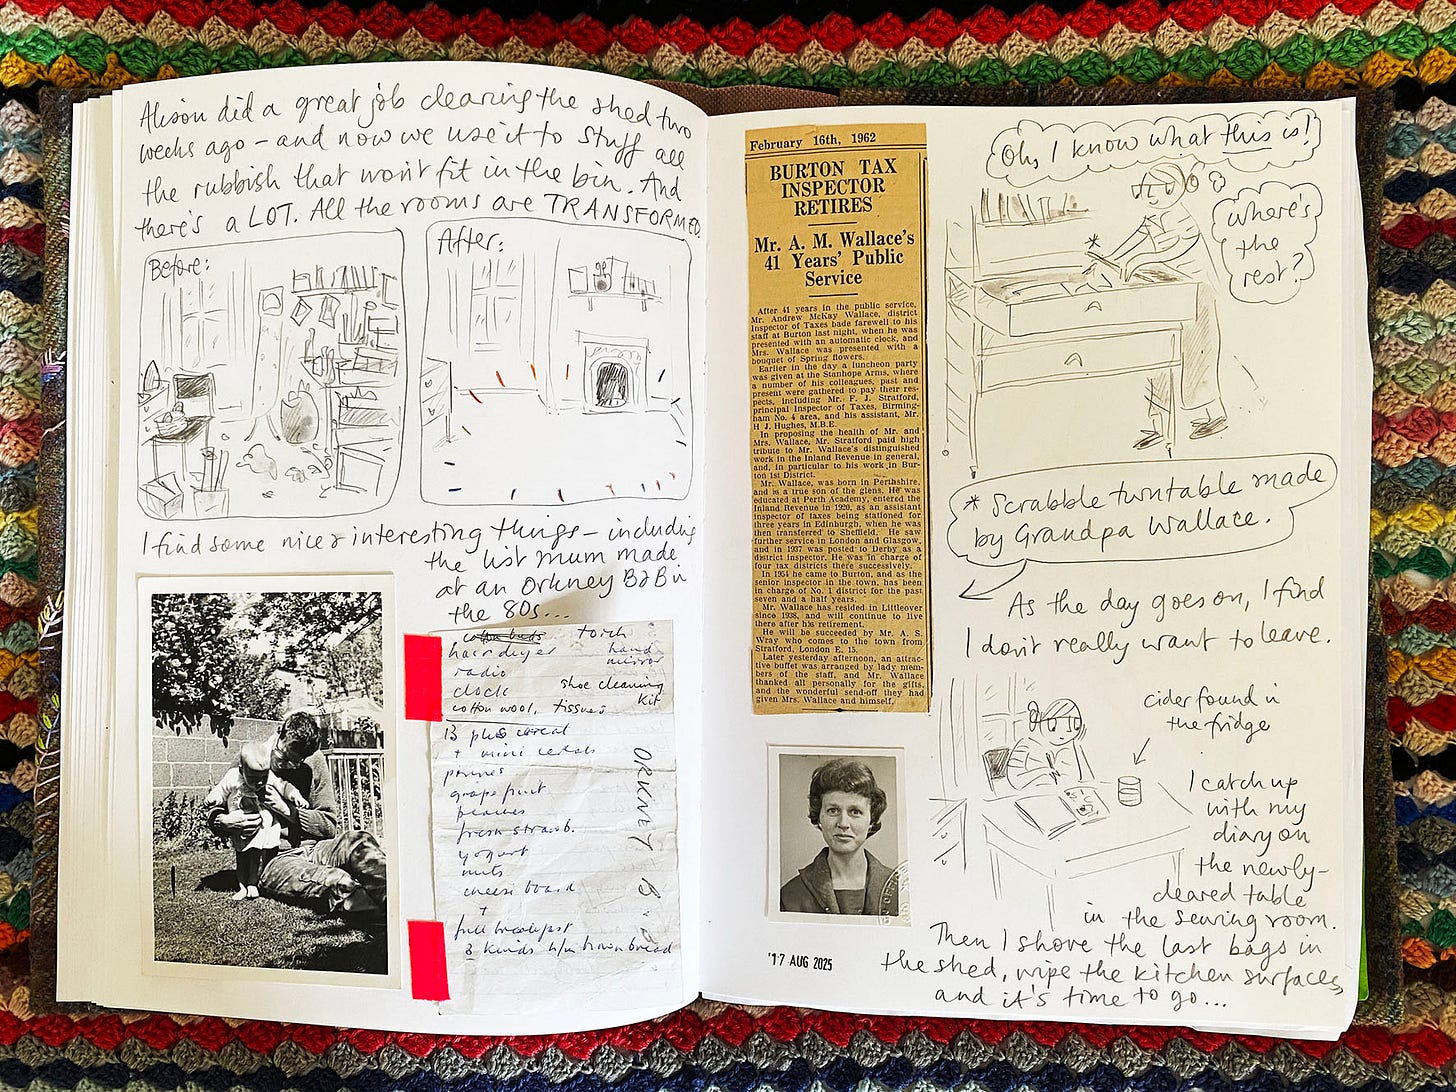 Alison did a great job clearing the shed two
weeks ago – and now we use it to stuff all
the rubbish that won't fit in the bin. And
there's a LOT. All the rooms are TRANSFORMED.
Before:
After:
I find some nice & interesting things – including
the list Mum made
at an Orkney B&B in
the 80s...
cotton buds torch
hairdryer hand
mirror
radio
clock shoe cleaning
kit
cotton wool, tissues
13 plus cereal
+ mini cereals
prunes
grapefruit
peaches
fresh strawb.
yogurt
nuts
cheese board
+
full breakfast
3 kinds h/m brown bread
ORKNEY B & B
February 16th, 1962
BURTON TAX
INSPECTOR
RETIRES
Mr. A. M. Wallace's
41 Years' Public
Service
After 41 years in the public service,
Mr. Andrew McKay Wallace, district
Inspector of Taxes bade farewell to his
staff at Burton last night, when he was
presented with an automatic clock, and
Mrs. Wallace was presented with a
bouquet of Spring flowers.
Earlier in the day a luncheon party
was given at the Stanhope Arms, where
a number of his colleagues, past and
present were gathered to pay their res-
pects, including Mr. F. J. Stratford,
principal Inspector of Taxes, Birming-
ham No. 4 area, and his assistant, Mr.
H J. Hughes, M.B.E.
In proposing the health of Mr. and
Mrs. Wallace, Mr. Stratford paid high
tribute to Mr. Wallace's distinguished
work in the Inland Revenue in general,
and, in particular to his work in Bur-
ton 1st District.
Mr. Wallace, was born in Perthshire,
and is a true son of the glens. He was
educated at Perth Academy, entered the
Inland Revenue in 1920, as an assistant
inspector of taxes being stationed for
three years in Edinburgh, when he was
then transferred to Sheffield. He saw
further service in London and Glasgow,
and in 1937 was posted to Derby as a
district inspector. He was in charge of
four tax districts there successively.
In 1954 he came to Burton, and as the
senior inspector in the town, has been
in charge of No. 1 district for the past
seven and a half years.
Mr. Wallace has resided in Littleover
since 1938, and will continue to live
there after his retirement.
He will be succeeded by Mr. A. S.
Wray who comes to the town from
Stratford, London E. 15.
Later yesterday afternoon, an attrac-
tive buffet was arranged by lady mem-
bers of the staff, and Mr. Wallace
thanked all personally for the gifts,
and the wonderful send-off they had
given Mrs. Wallace and himself.
'17 AUG 2025
Oh, I know what this is!
Where's
the
rest?
*
* Scrabble turntable made
by Grandpa Wallace.
As the day goes on, I find
I don't really want to leave.
cider found in
the fridge
I catch up
with my
diary on
the newly-
cleared table
in the sewing room.
Then I shove the last bags in
the shed, wipe the kitchen surfaces,
and it's time to go...